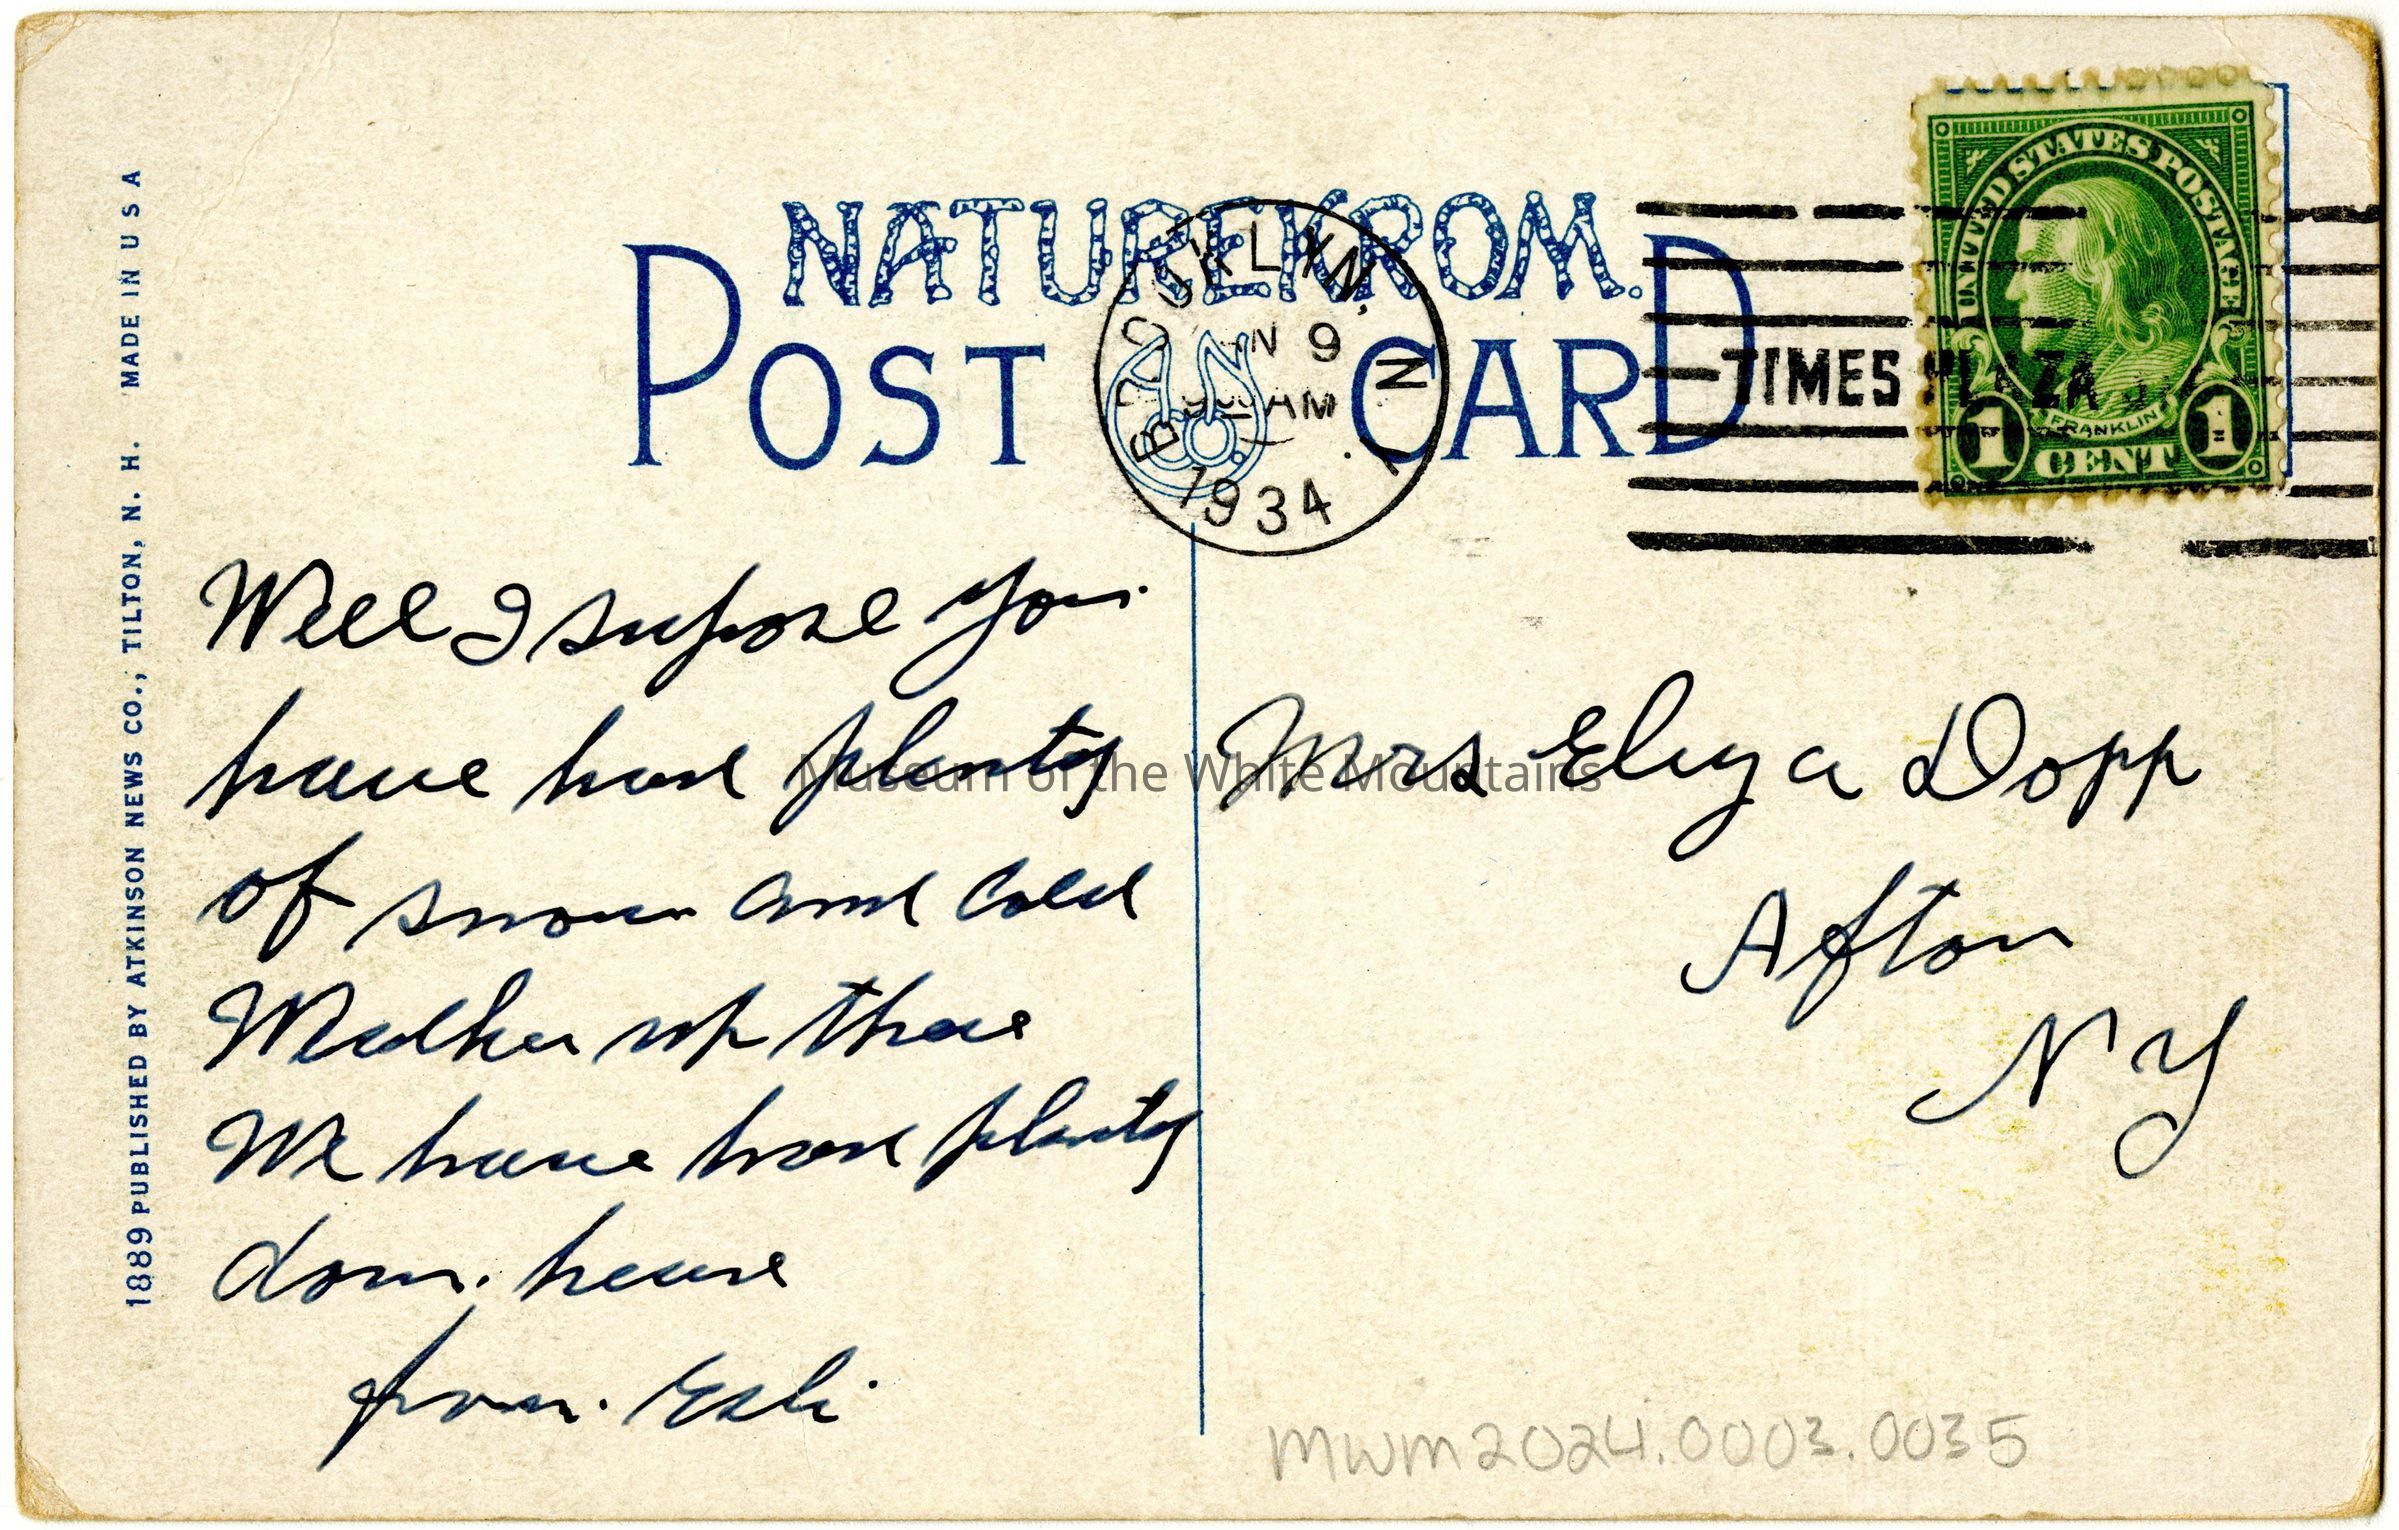 NATUREKROM.
POST CARD
BROOKLYN, N.Y.
N 9
AM
1934
TIMES PLAZA
UNITED STATES POSTAGE
FRANKLIN
1 CENT 1
1889 PUBLISHED BY ATKINSON NEWS CO., TILTON, N. H. MADE IN U S A
Well I supose you
have had plenty
of snow and cold
Weather up there
We have had plenty
down heare
from Esli
Mrs Eliza Dopp
Afton
N Y
Museum of the White Mountains
MWM2024.0003.0035